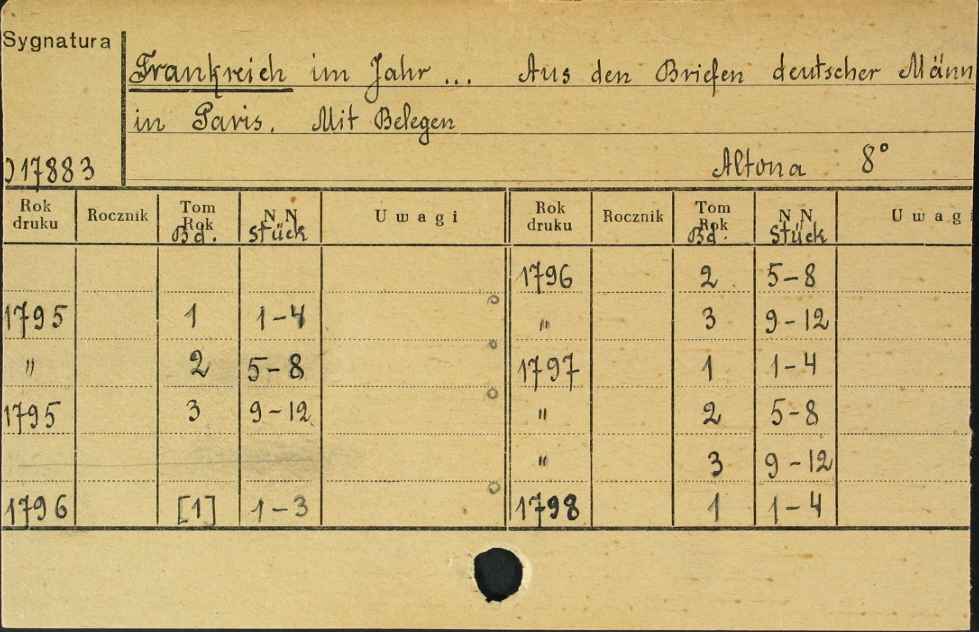 Sygnatura
Frankreich im Jahr ... Aus den Briefen deutscher Männ
in Paris. Mit Belegen
17883
Altona 8°
Rok druku Rocznik Tom Rok Bd. N N Stück Uwagi Rok druku Rocznik Tom Rok Bd. N N Stück Uwag
1796 2 5-8
1795 1 1-4 " 3 9-12
" 2 5-8 1797 1 1-4
1795 3 9-12 " 2 5-8
" 3 9-12
1796 [1] 1-3 1798 1 1-4